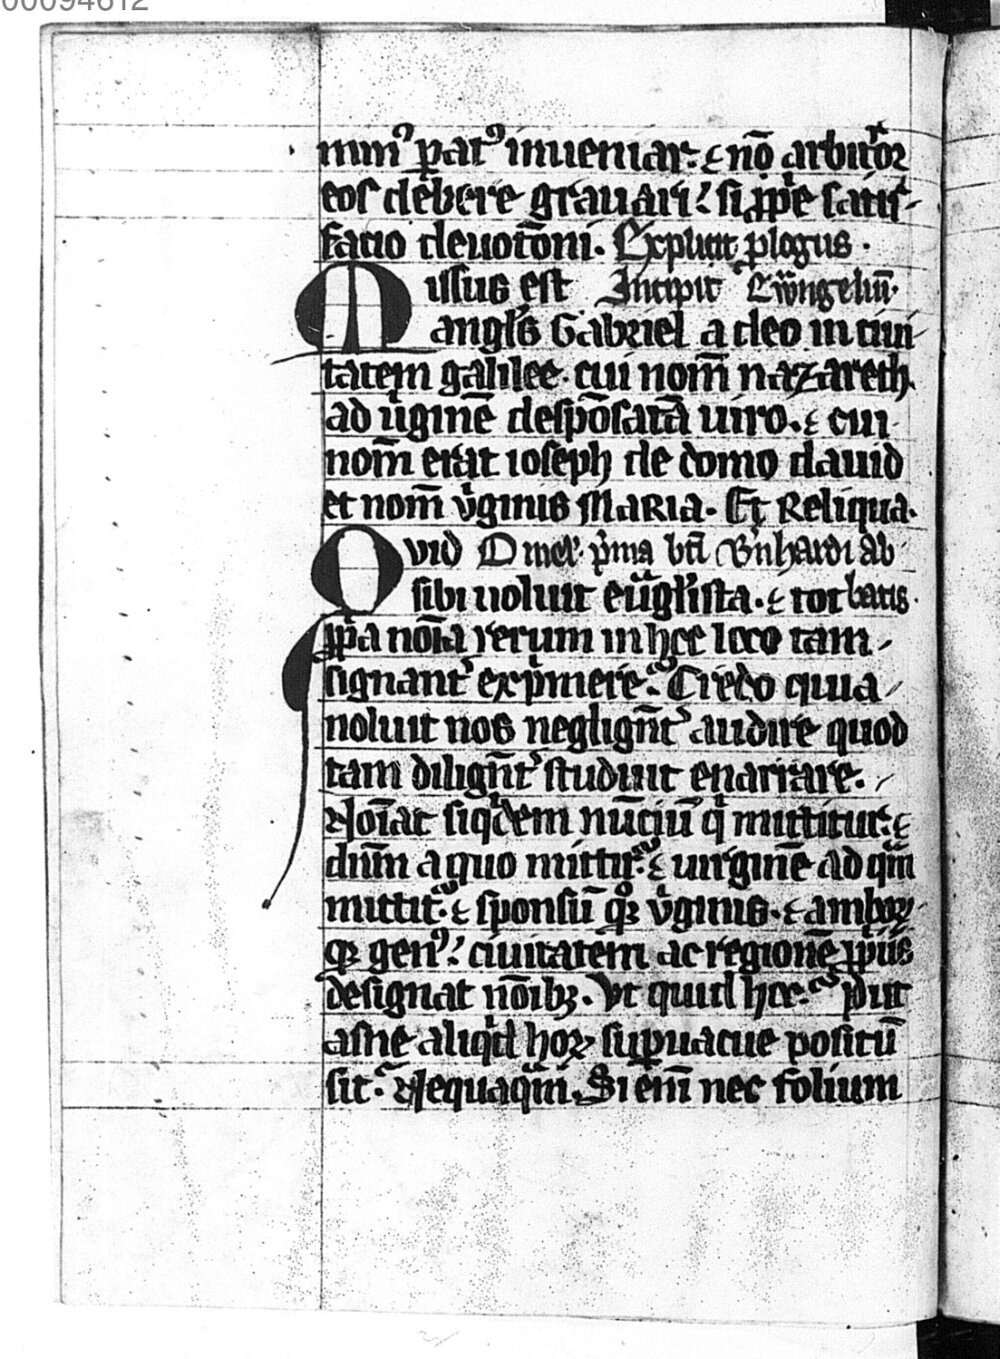 00094612
min᷒ parat᷒ inueniar. ⁊ nō arbitror
eos debere grauari: si ꝓprie satis
facio deuotōni. Explicit ꝓlogus.
Missus est Incipit Ewangeliū.
angl̄s Gabriel a deo in ciui
tatem galilee. cui nom̄ nazareth.
ad uͥginē despōsatā uiro. ⁊ cui
nom̄ erat ioseph de domo dauid
et nom̄ vͥginis MaRia. Et Reliqua.
Qvid Omel. pͥma bt̄i B'nhardi ab
sibi uoluit euāgl̄ista. ⁊ tot batis.
ꝓpͥa nōia rerum in hoc loco tam
signant' expͥmere. Credo quia
noluit nos neglignt̄' audire quod
tam dilignt̄' studuit enarrare.
Noīat siqͥdem nūciū qͥ mittitur. ⁊
dnm̄ a quo mittit᷑. ⁊ uirginē ad qm̄
mittit᷑. ⁊ sponsū qꝫ vͥginis. ⁊ amboꝝ
qꝫ gen᷒: ciuitatem ac regionē ꝓpͥiis
designat nōibꝫ. Vt quid hoc. Put
asne aliqͥd hoꝝ suꝑuacue positū
sit. Nequaqͣm. Si em̄ nec folium